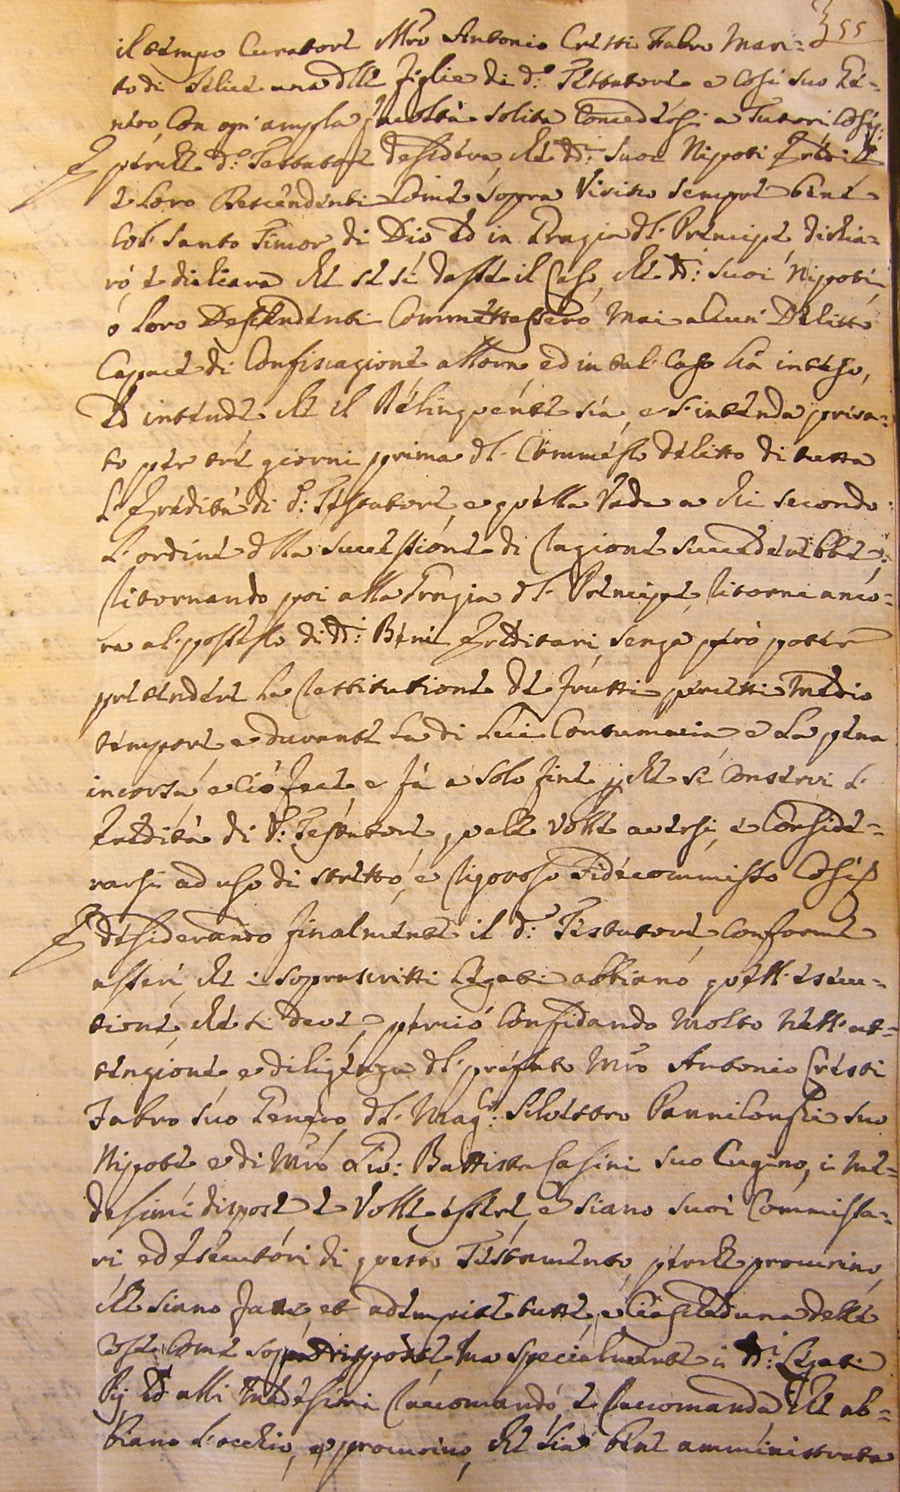 355
il tempo Curatore Mro Antonio Cresti Fabro Mari=
to di Felice una delle figlie di d.o Testatore e Così suo Ge=
nero, Con ogni ampla facoltà solita Concedersi a Tutori, Così
perche d.o Testatore desidera che dd.i suoi Nipoti Eredi
e Loro Descendenti Come sopra Vivino sempre bene
Col Santo Timor di Dio Ed in Grazia del Principe dichia=
rò, e dichiara che se si dasse il Caso, che dd.i suoi Nipoti
ò Loro Descendenti Commettessero Mai alcun Delitto
Capace di Confiscazione allora ed in tal Caso hà inteso,
Ed intende che il Delinquente sia, e s'intenda priva=
to per tre giorni prima del Commesso delitto di tutta
L'Eredità di d.o Testatore, e quella Vada a chi secondo
L'ordine della successione di Ragione succederebbe, e
Ritornando poi alla Grazia del Principe, Ritorni anco=
ra al possesso di dd.i Beni Ereditari senza però poter
pretendere La Restitutione de frutti percetti Medio
tempore e durante La di Lui Contumacia e La pena
incorsa, e Ciò face e fà a solo fine che si Conservi L'
Eredità di d.o Testatore, quale Volle aversi, e Conside=
rarsi ad uso di stretto, e Rigoroso Fidecommisso Così
desiderando finalmente il d.o Testatore Conforme
asserì, che i soprascritti Legati abbiano quell'esecu=
tione, che si deve, perciò Confidando Molto Nell'at=
tenzione, e diligenza del prefato Mro Antonio Cresti
Fabro suo Genero, del Mag.co Silvestro Pannilonghi suo
Nipote e di Mro Gio: Battista Casini suo Cugino, i Me=
desimi dispose e Volle essere, e siano suoi Commissa=
ri ed Esecutori di questo Testamento, perche procurino,
che siano fatte, et adempite tutte, e Ciascheduna delle
Cose Come sopra disposte Ma specialmente i dd.i Legati
Pij Ed alli Medesimi Raccomandò, e Raccomanda che ab=
biano L'occhio, e procurino, che sia bene amministrata